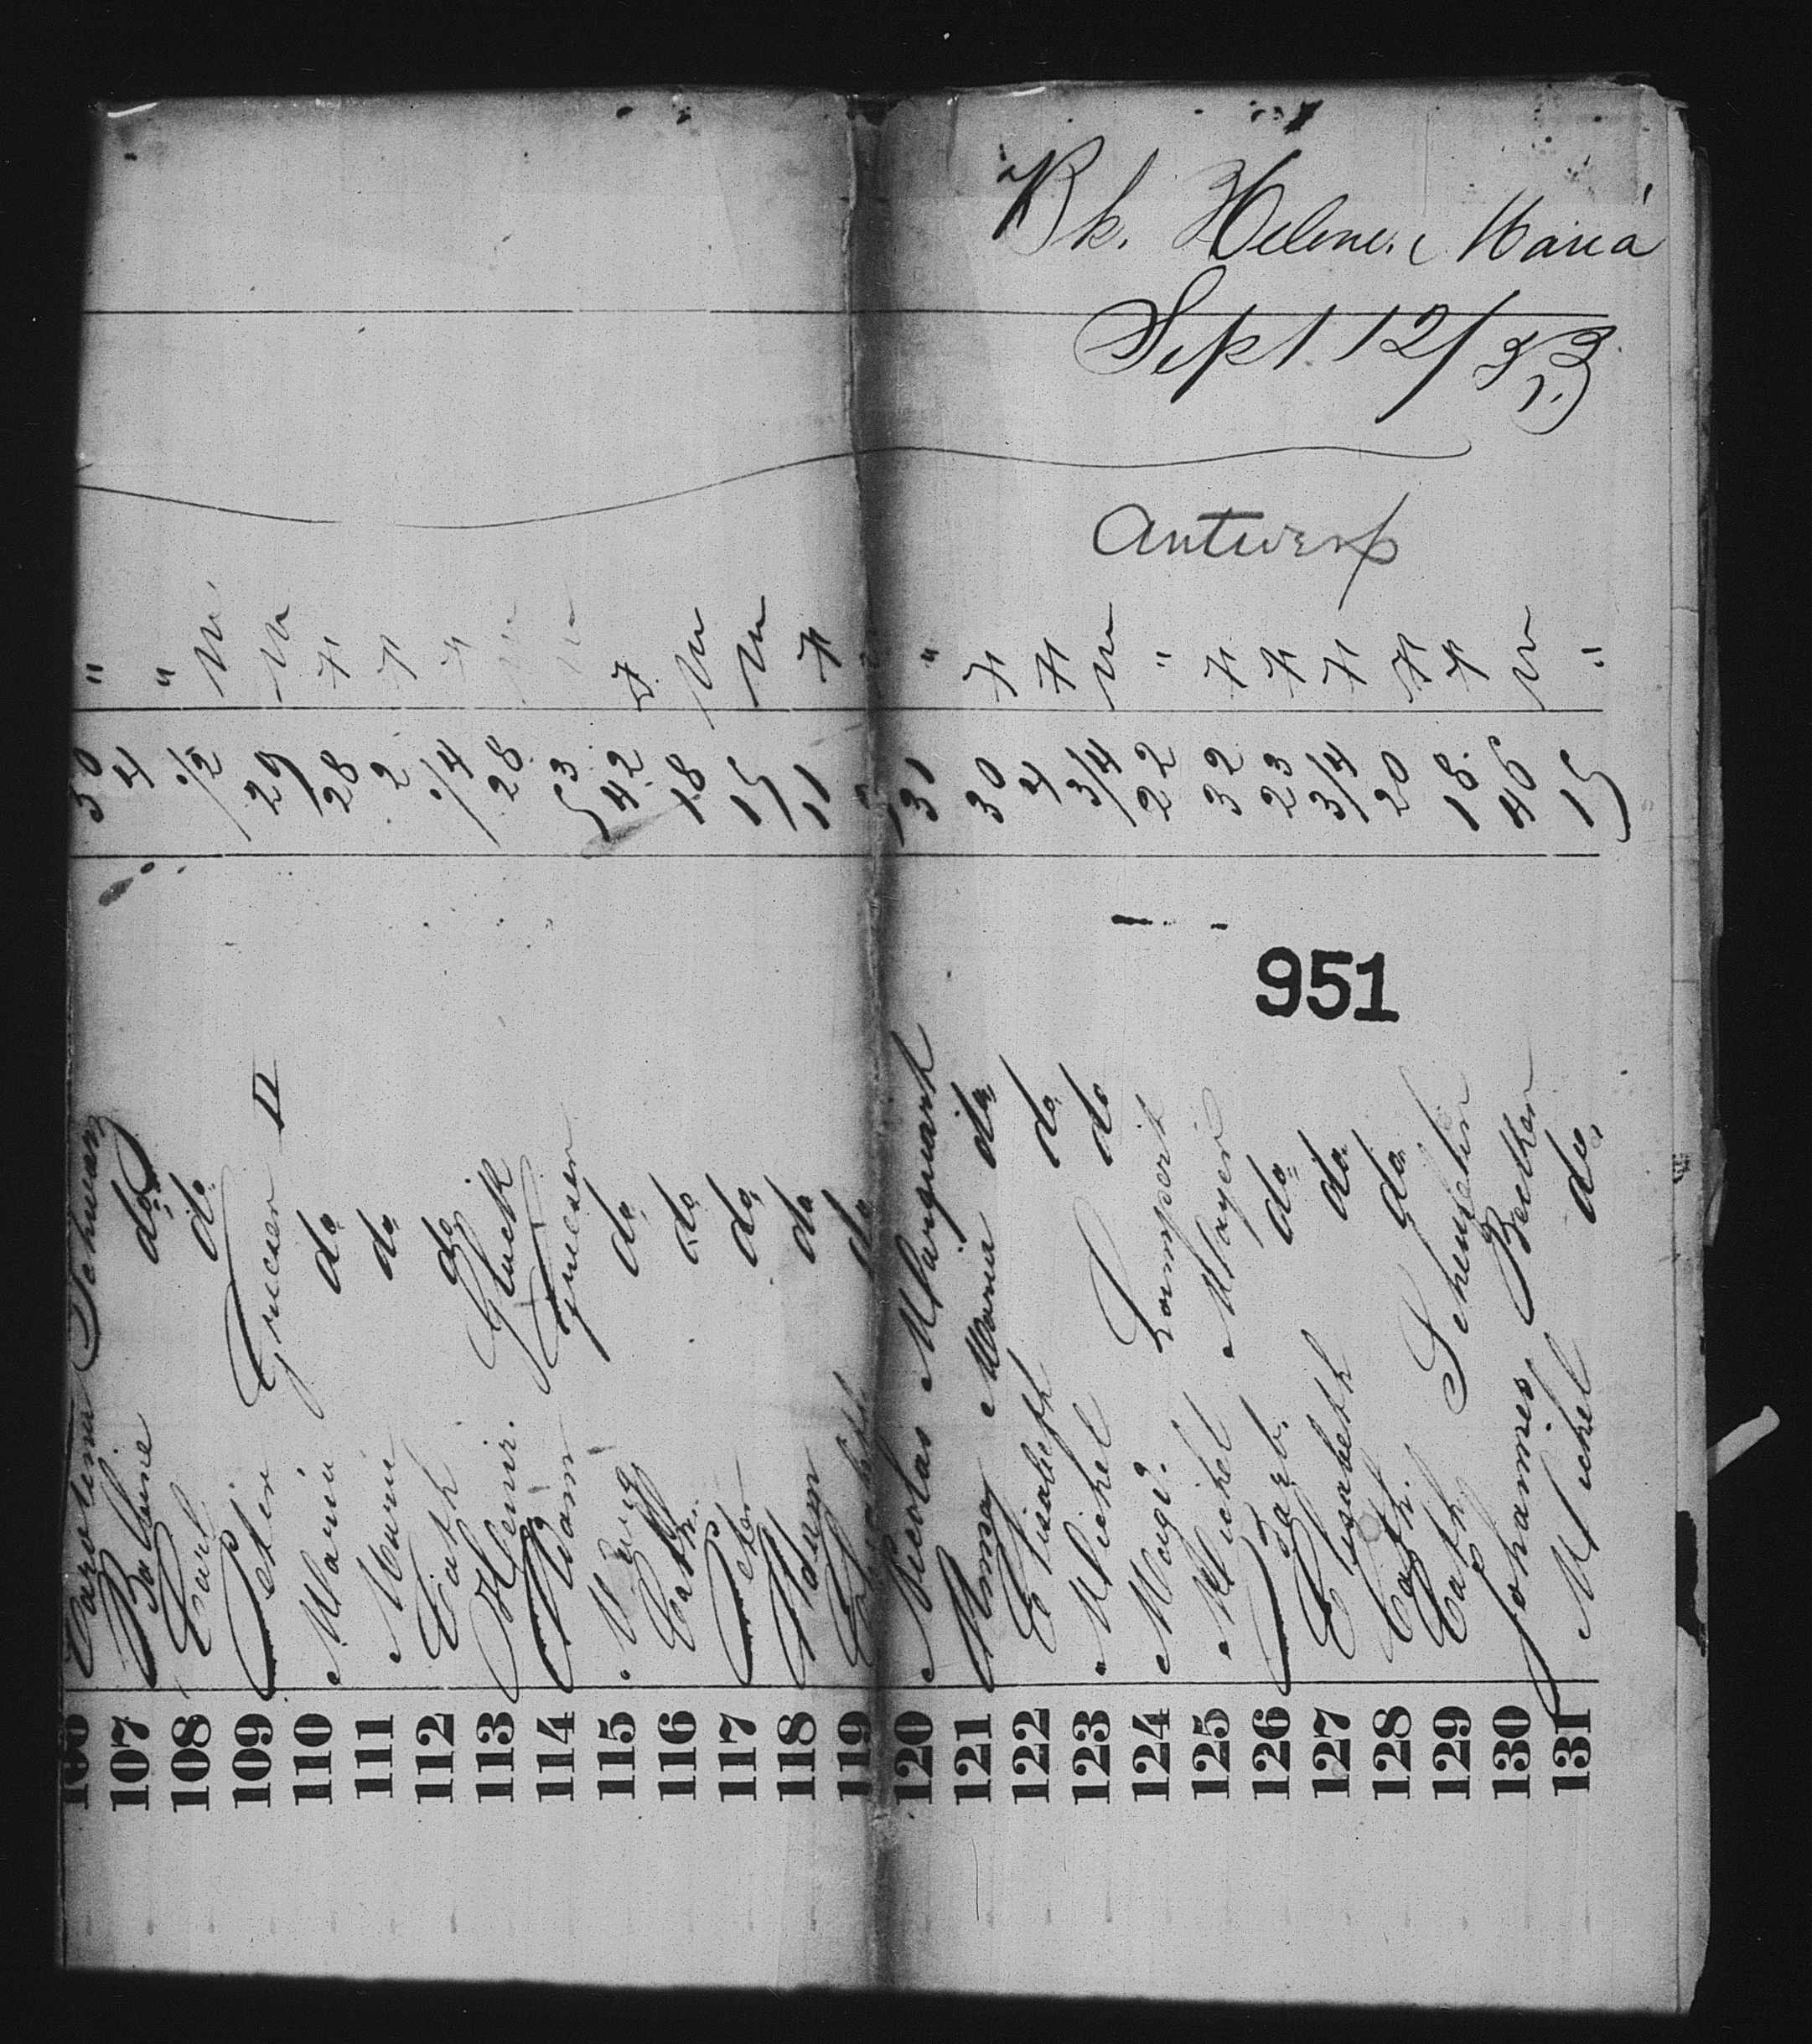 Bk. Helene Maria
Sept 12/53
Antwerp
951
106 Carolina Schwarz 30 "
107 Balbine do. 4 "
108 Carl do. 1/2 m
109 Peter Grieser II 29 m
110 Maria do. 28 f
111 Maria do. 2 f
112 Cath do. 1/4 f
113 Henir. Gluck 28
114 Adam Grieser 53
115 Marg do. 42 f
116 Cath. do. 18 m
117 Peter do. 15 m
118 Adam do 11 f
119 Elisabeth do
120 Nicolas Marquart 31 "
121 Anna Maria do. 30 f
122 Elisabeth do. 4 f
123 Michel do 3/4 m
124 Magd. Lampert 22 "
125 Michel Mayer 32 f
126 Barb. do. 23 f
127 Elisabeth do. 3/4 f
128 Cath. do. 20 f
129 Cath 18 f
130 Johannes Becker 46 m
131 Michel do. 15 "